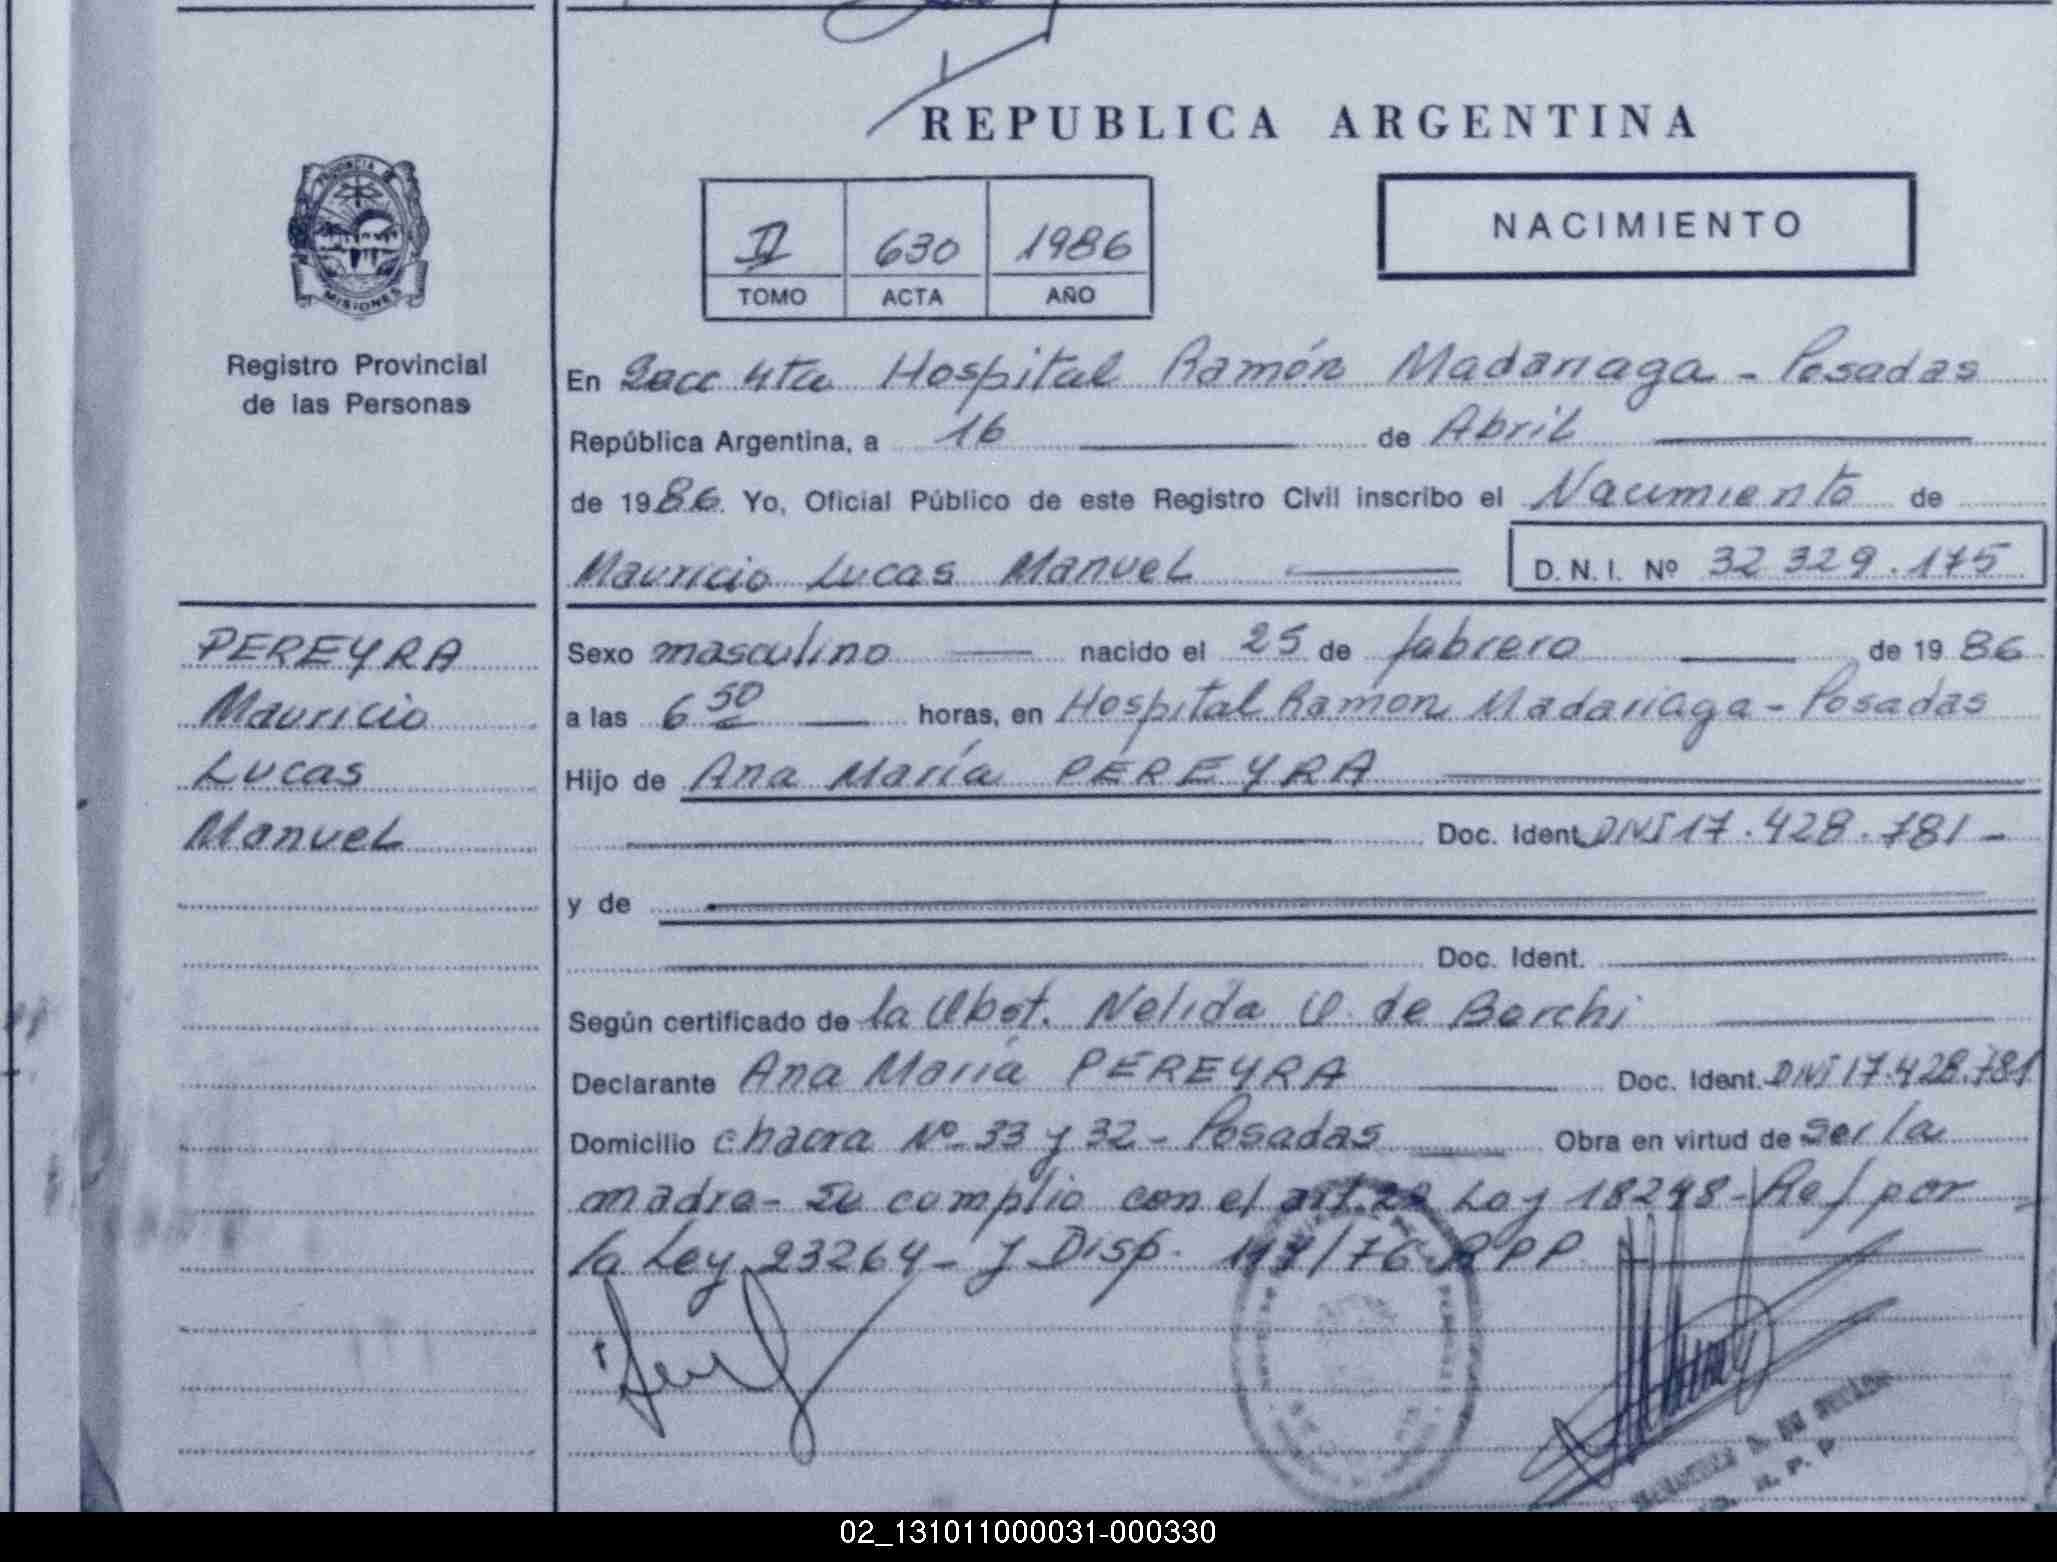 REPUBLICA ARGENTINA
PROVINCIA DE
MISIONES
Registro Provincial
de las Personas
NACIMIENTO
II 630 1986
TOMO ACTA AÑO
En Secc 4ta Hospital Ramón Madariaga - Posadas
República Argentina, a 16 de Abril
de 1986. Yo, Oficial Público de este Registro Civil inscribo el Nacimiento de
Mauricio Lucas Manuel
D. N. I. Nº 32 329.175
PEREYRA
Mauricio
Lucas
Manuel
Sexo masculino nacido el 25 de febrero de 1986
a las 6 50 horas, en Hospital Ramón Madariaga - Posadas
Hijo de Ana María PEREYRA
Doc. Ident. DNI 17.428.781 -
y de
Doc. Ident.
Según certificado de la Obst. Nelida O. de Borchi
Declarante Ana María PEREYRA Doc. Ident. DNI 17.428.781
Domicilio chacra Nº 33 y 32 - Posadas Obra en virtud de ser la
madre - Se complio con el art. Ley 18248 - Ref por
la Ley 23264 - y Disp. /76 RPP.
R. P. P.
02_131011000031-000330